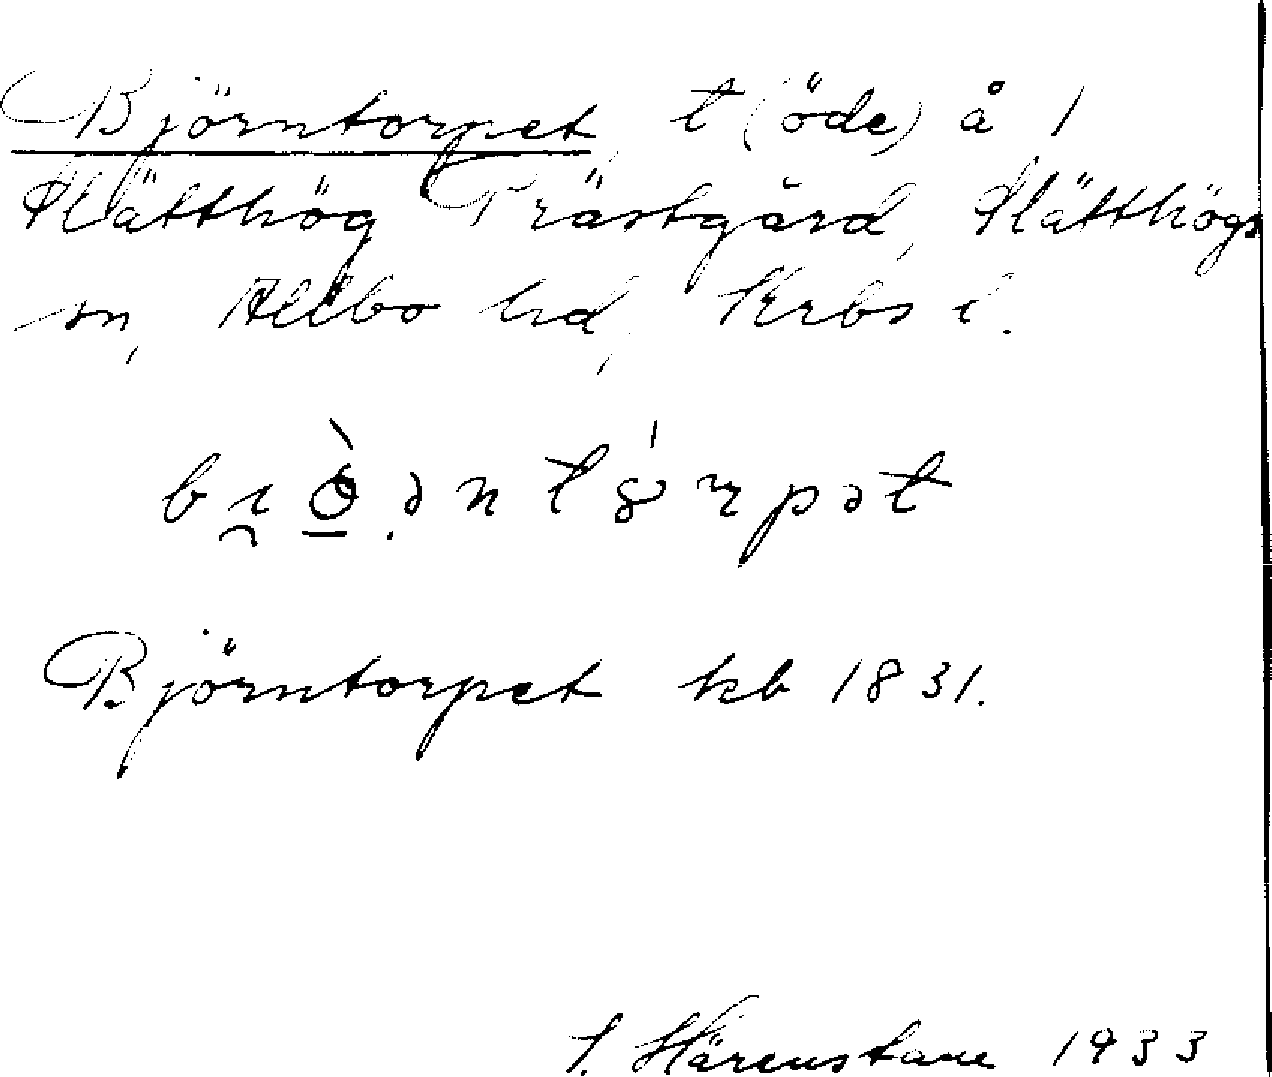 Björntorpet, t (öde) å 1
Slätthög Prästgård, Slätthögs
sn, Allbo hd, Krbs l.
bi̯ö̀ə̣ntórpət
Björntorpet kb 1831.
S. Härenstam 1933